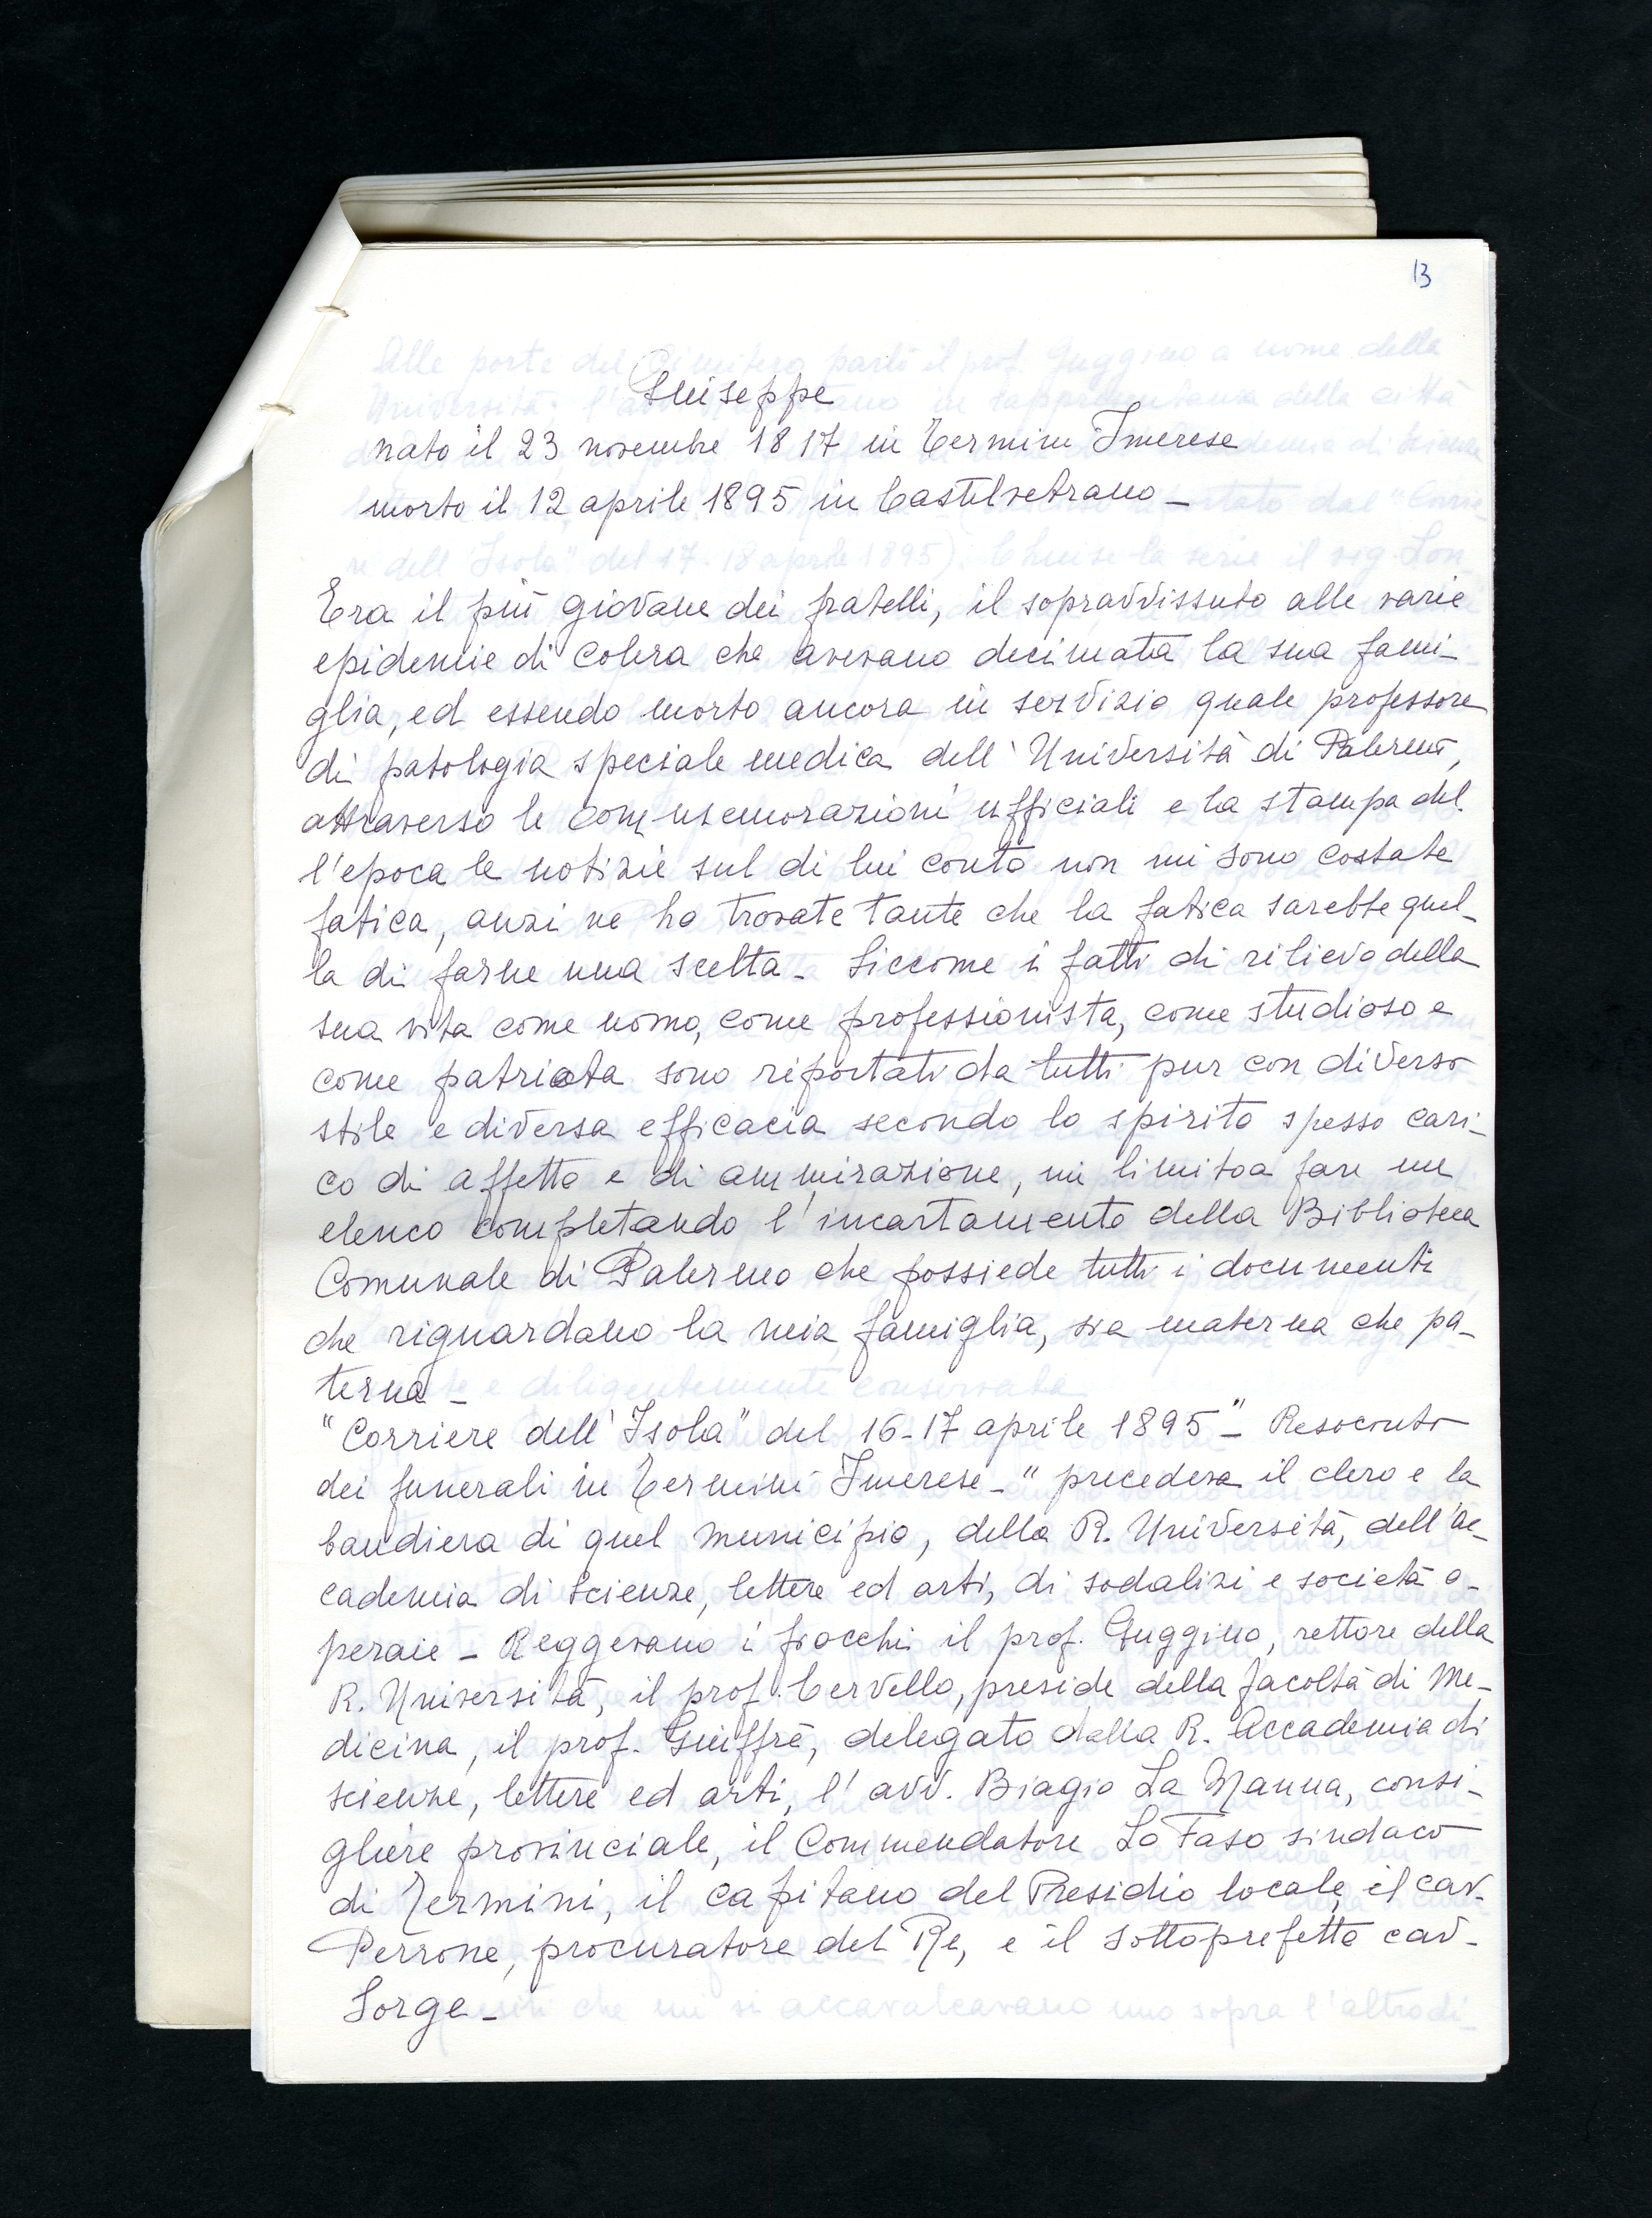 13
Giuseppe
nato il 23 novembre 1817 in Termini Imerese
morto il 12 aprile 1895 in Castelvetrano -
Era il più giovane dei fratelli, il sopravvissuto alle varie
epidemie di colera che avevano decimata la sua fami-
glia, ed essendo morto ancora in servizio quale professore
di patologia speciale medica dell'Università di Palermo,
attraverso le commemorazioni ufficiali e la stampa del-
l'epoca le notizie sul di lui conto non mi sono costate
fatica, anzi ne ho trovate tante che la fatica sarebbe quel-
la di farne una scelta - Siccome i fatti di rilievo della
sua vita come uomo, come professionista, come studioso e
come patriota sono riportati da tutti pur con diverso
stile e diversa efficacia secondo lo spirito spesso cari-
co di affetto e di ammirazione, mi limito a fare un
elenco completando l'incartamento della Biblioteca
Comunale di Palermo che possiede tutti i documenti
che riguardano la mia famiglia, sia materna che pa-
terna -
"Corriere dell'Isola" del 16-17 aprile 1895" - Resoconto
dei funerali in Termini Imerese - "precedeva il clero e la
bandiera di quel municipio, della R. Università, dell'ac-
cademia di scienze, lettere ed arti, di sodalizi e società o-
peraie - Reggevano i fiocchi il prof. Guggino, rettore della
R. Università, il prof. Cervello, preside della facoltà di Me-
dicina, il prof. Giuffrè, delegato dalla R. Accademia di
scienze, lettere ed arti, l'avv. Biagio La Manna, consi-
gliere provinciale, il Commendatore Lo Faso sindaco
di Termini, il capitano del Presidio locale, il cav.
Perrone, procuratore del Re, e il sottoprefetto cav-
Sorge -